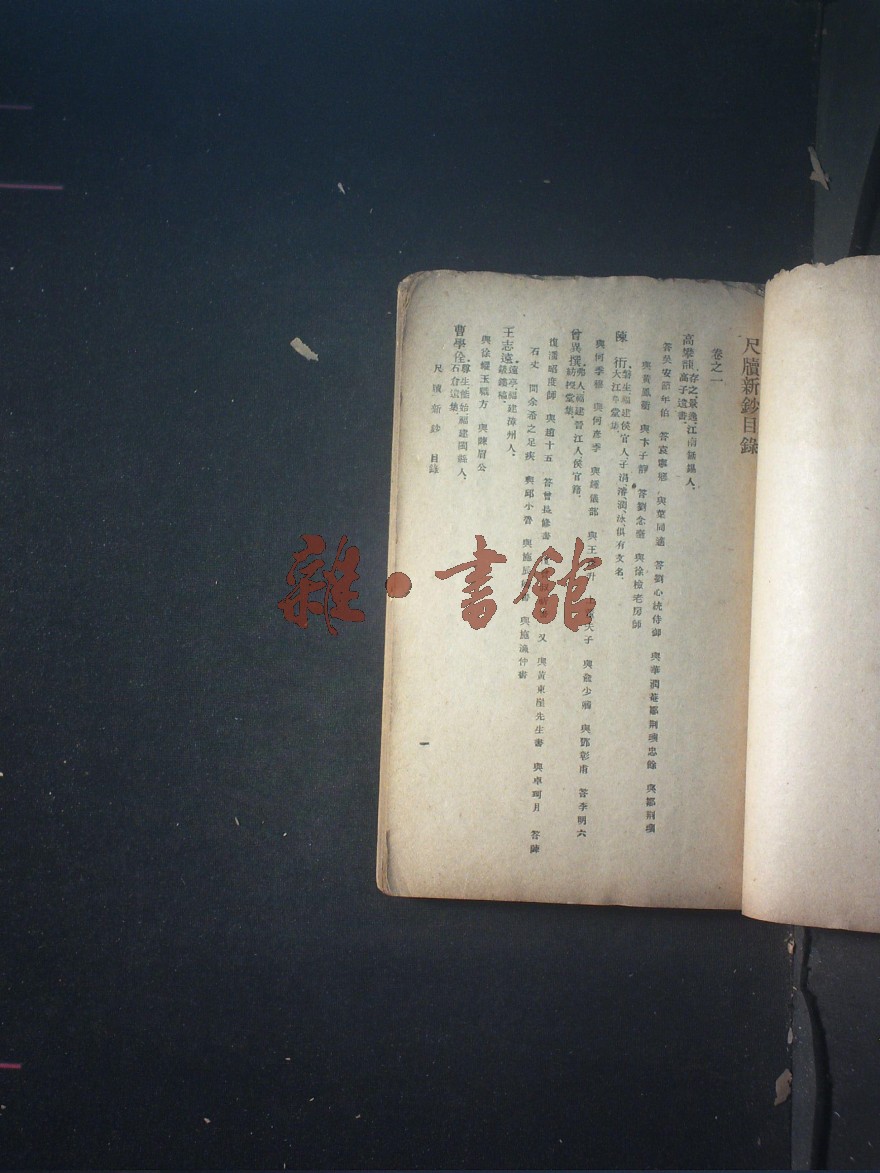 尺牘新鈔目錄
卷之一
高攀龍 存之、景逸、江南無錫人、
高子遺書、
答吳安節年伯 答袁寧鄉 與葉同適 答劉心統侍御 與華潤菴鄒荆璵忠餘 與鄒荆璵
與黃鳳衢 與卞子靜 答劉念臺 與徐檢老房師
陳 衎 磐生、福建侯官人、子涓、濬、潤、泳、俱有文名、
大江草堂集、
與何季穆 與何彥季 與鍾儀部 與王 升 夫子 與翁少 與鄧彰甫 答李明六
曾異撰 弗人、福建晉江人、侯官籍、
紡授堂集、
復潘昭度師 與趙十五 答曾長修書 又 與黃東崖先生書 與卓珂月 答陳
石丈 問余希之足疾 與邱小魯 與施辰 書 與施漁仲書
王志遠 遠亭、福建漳州人、
與徐耀玉職方 與陳眉公
曹學佺 尊生、能始、福建閩縣人、
石倉 集、
尺牘新鈔 目錄
一
雜·書館